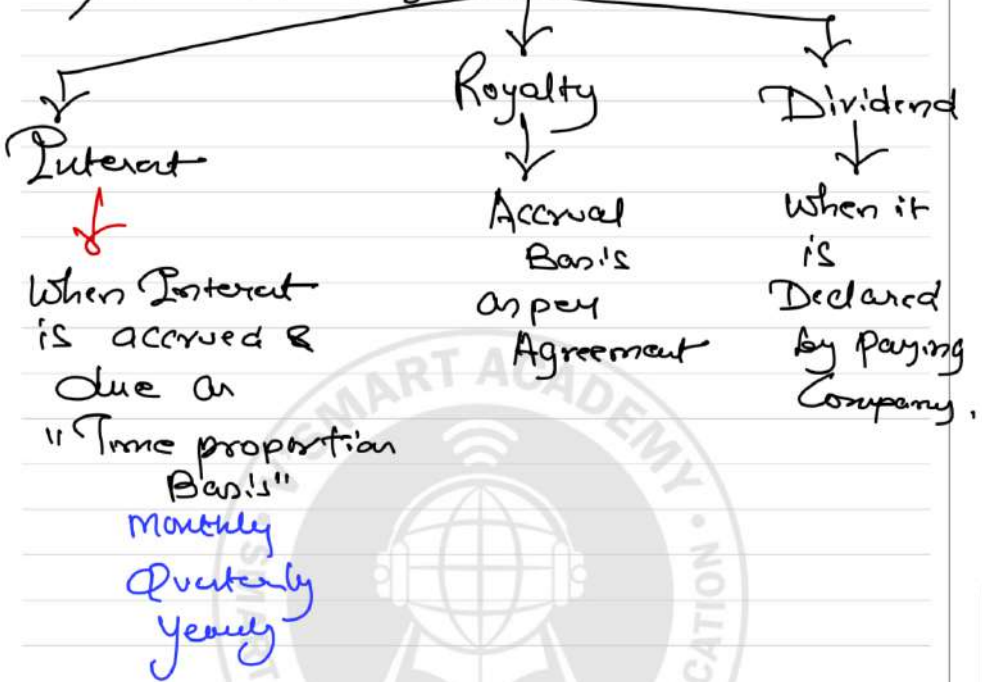 Interest
When Interest
is accrued &
due on
"Time proportion
Basis"
Monthly
Quarterly
Yearly
Royalty
Accrual
Basis
as per
Agreement
Dividend
When it
is
Declared
by paying
Company.
SMART ACADEMY